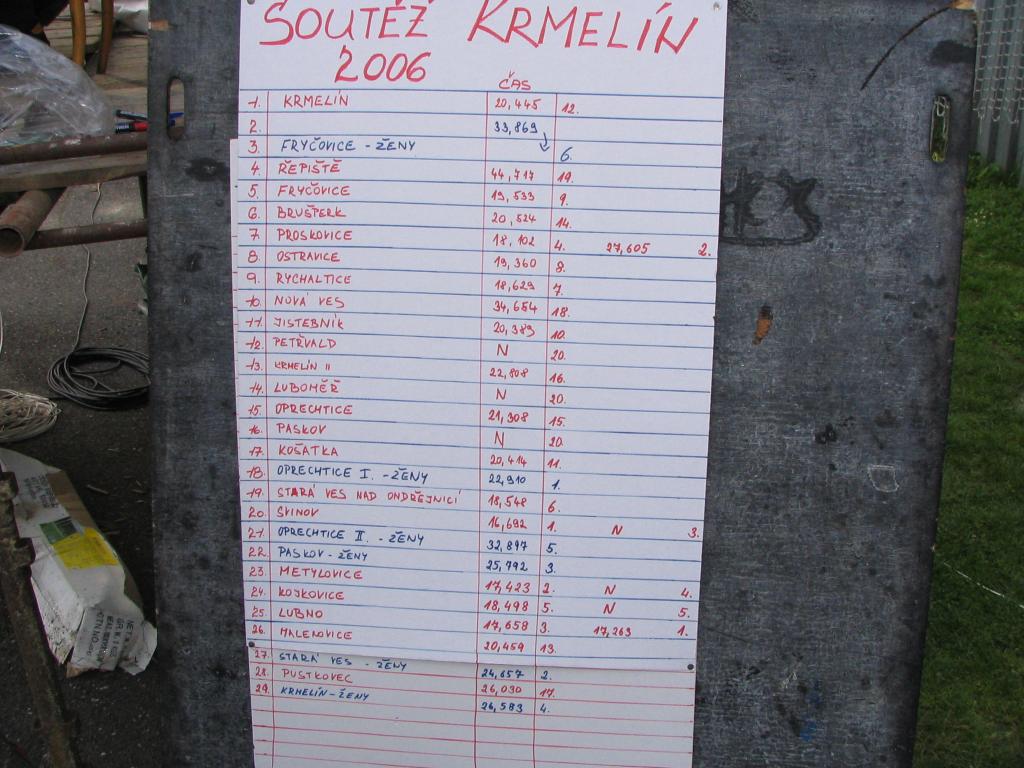 SOUTĚŽ KRMELÍN
2006
ČAS
1. KRMELÍN 20,445 12.
2. 33,869
3. FRYČOVICE - ŽENY 6.
4. ŘEPIŠTĚ 44,717 19.
5. FRYČOVICE 19,533 9.
6. BRUŠPERK 20,524 14.
7. PROSKOVICE 18,102 4. 27,605 2.
8. OSTRAVICE 19,360 8.
9. RYCHALTICE 18,629 7.
10. NOVÁ VES 34,654 18.
11. JISTEBNÍK 20,389 10.
12. PETŘVALD N 20.
13. KRMELÍN II 22,808 16.
14. LUBOMĚŘ N 20.
15. OPRECHTICE 21,308 15.
16. PASKOV N 20.
17. KOŠÁTKA 20,414 11.
18. OPRECHTICE I. - ŽENY 22,910 1.
19. STARÁ VES NAD ONDŘEJNICÍ 18,548 6.
20. SVINOV 16,692 1. N 3.
21. OPRECHTICE II. - ŽENY 32,897 5.
22. PASKOV - ŽENY 25,792 3.
23. METYLOVICE 17,423 2. N 4.
24. KOJKOVICE 18,498 5. N 5.
25. LUBNO 17,658 3. 17,263 1.
26. MALENOVICE 20,459 13.
27. STARÁ VES - ŽENY 24,657 2.
28. PUSTKOVEC 26,030 17.
29. KRMELÍN - ŽENY 26,583 4.